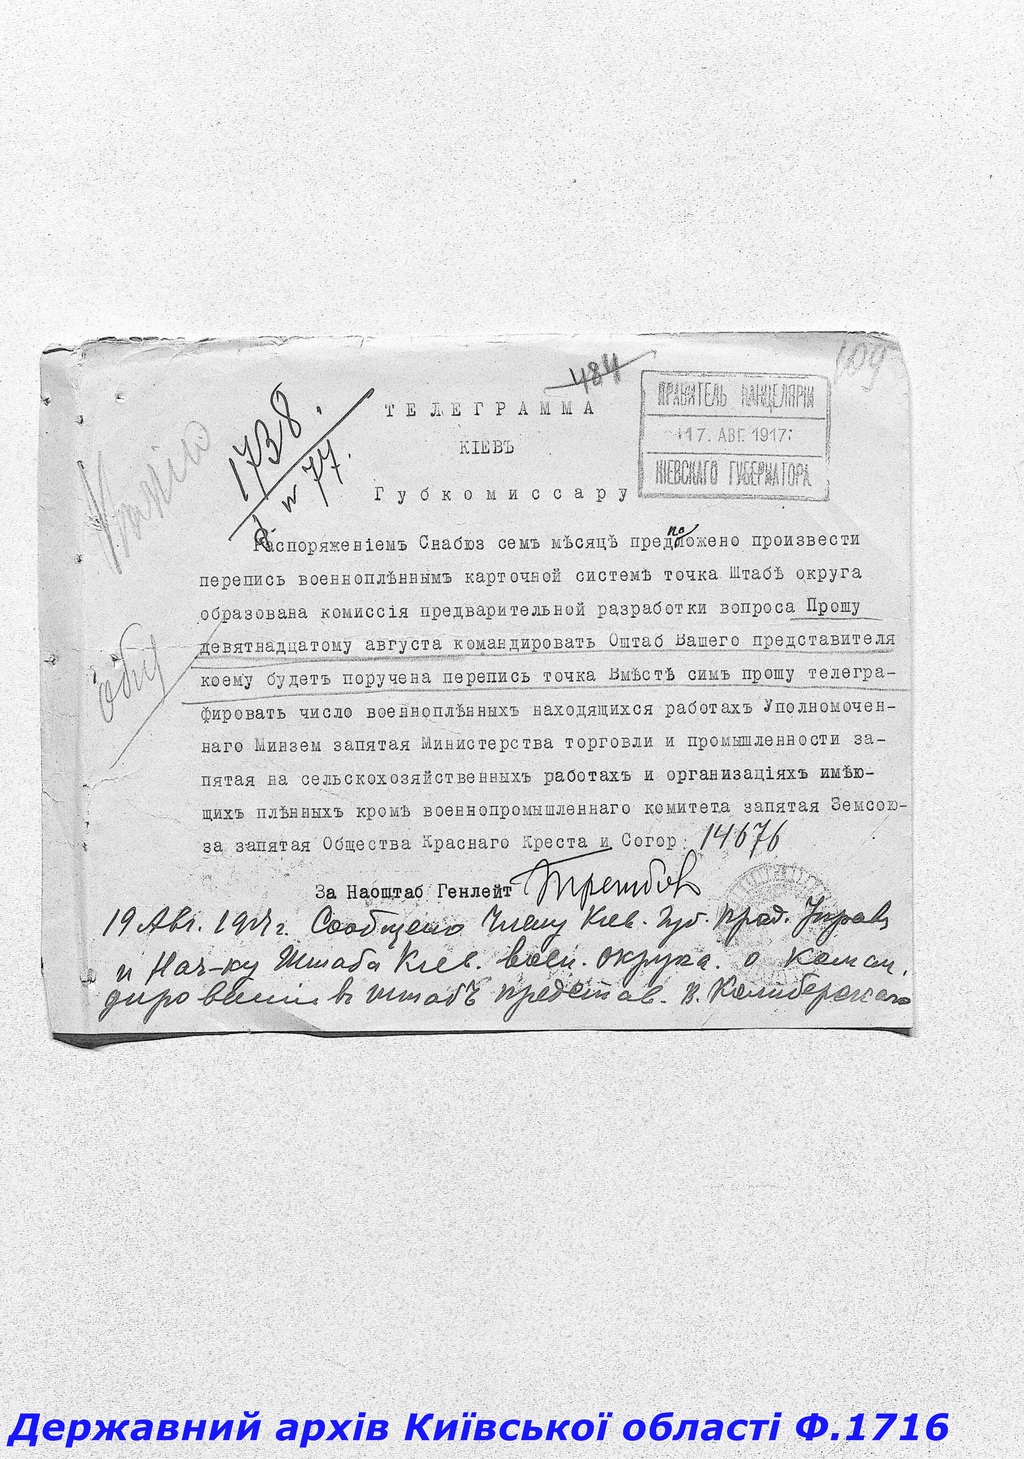 109
484
ПРАВИТЕЛЬ КАНЦЕЛЯРІИ
17. АВГ. 1917
КІЕВСКАГО ГУБЕРНАТОРА
1738.
77.
ТЕЛЕГРАММА
КІЕВЪ
Губкомиссару
Распоряженіемъ Снабюз семъ мѣсяцѣ предположено произвести
перепись военноплѣннымъ карточной системѣ точка Штабѣ округа
образована комиссія предварительной разработки вопроса Прошу
девятнадцатому августа командировать Оштаб Вашего представителя
коему будетъ поручена перепись точка Вмѣстѣ симъ прошу телегра-
фировать число военноплѣнныхъ находящихся работахъ Уполномочен-
наго Минзем запятая Министерства торговли и промышленности за-
пятая на сельскохозяйственныхъ работахъ и организаціяхъ имѣю-
щихъ плѣнныхъ кромѣ военнопромышленнаго комитета запятая Земсою-
за запятая Общества Краснаго Креста и Согор 14676
За Наоштаб Генлейт
19 Авг. 1917 г. Сообщено Члену Кіев. Губ. Прод. Управ
и Нач-ку Штаба Кіев. воен. округа. о коман.
дированіи въ штабъ представ. В. Калиберскаго
Державний архів Київської області Ф.1716